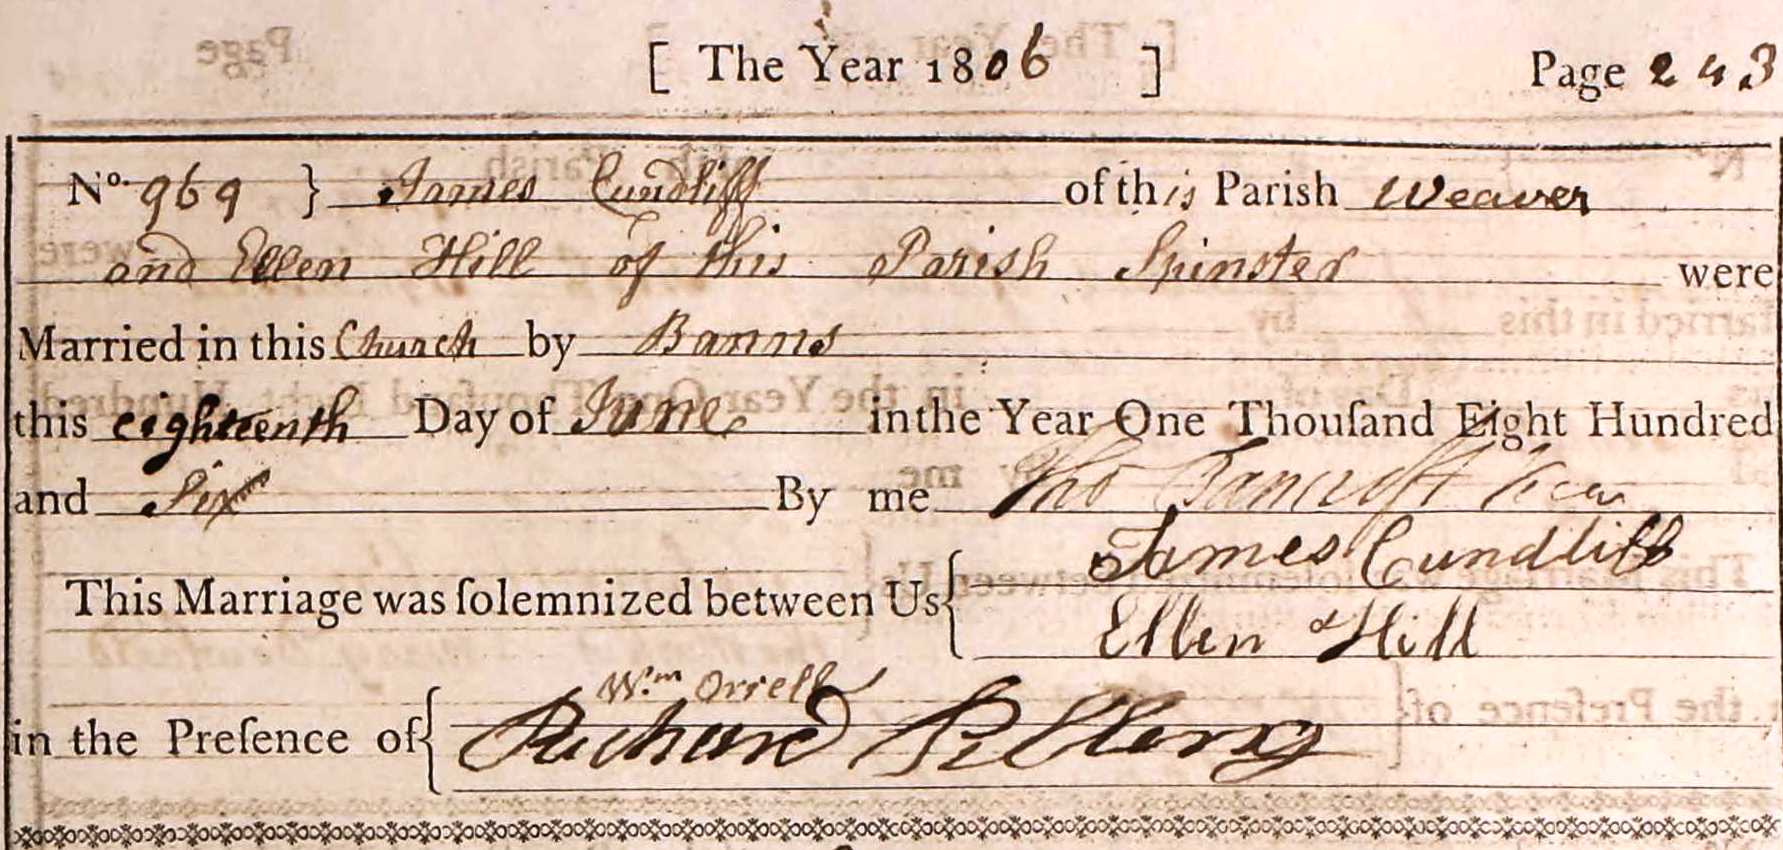 [ The Year 1806 ] Page 243
No. 969 } James Cundliff of this Parish Weaver
and Ellen Hill of this Parish Spinster were
Married in this Church by Banns
this eighteenth Day of June in the Year One Thouſand Eight Hundred
and Six By me Tho Bancroft Vicar
This Marriage was ſolemnized between Us { James Cundliff
Ellen Hill
in the Preſence of { Wm Orrell
Richard Pilling